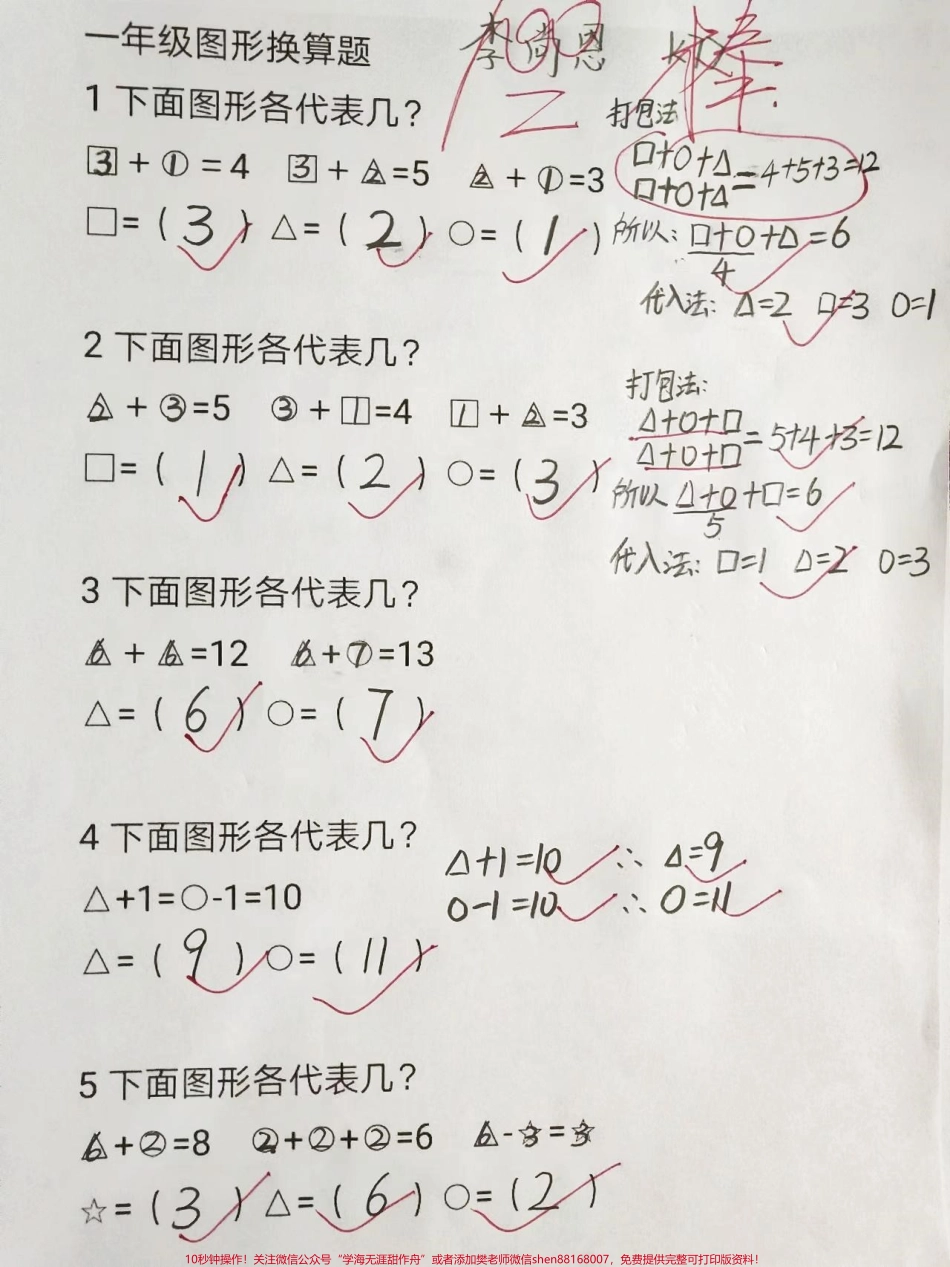 一年级图形换算题 李尚恩 100 棒
1 下面图形各代表几?
3 + 1 = 4 3 + 2 =5 2 + 1 =3
□= ( 3 ) △= ( 2 ) ○= ( 1 )
打包法
□+○+△
□+○+△ = 4+5+3=12
所以: □+○+△=6
4
代入法: △=2 □=3 ○=1
2 下面图形各代表几?
2 + 3 =5 3 + 1 =4 1 + 2 =3
□= ( 1 ) △= ( 2 ) ○= ( 3 )
打包法:
△+○+□
△+○+□ = 5+4+3=12
所以 △+○+□=6
5
代入法: □=1 △=2 ○=3
3 下面图形各代表几?
6 + 6 =12 6 + 7 =13
△= ( 6 ) ○= ( 7 )
4 下面图形各代表几?
△+1=○-1=10
△= ( 9 ) ○= ( 11 )
△+1=10 ∴ △=9
○-1=10 ∴ ○=11
5 下面图形各代表几?
6 + 2 =8 2 + 2 + 2 =6 6 - 3 = 3
☆= ( 3 ) △= ( 6 ) ○= ( 2 )
10秒钟操作！关注微信公众号“学海无涯甜作舟”或者添加樊老师微信shen88168007，免费提供完整可打印版资料！